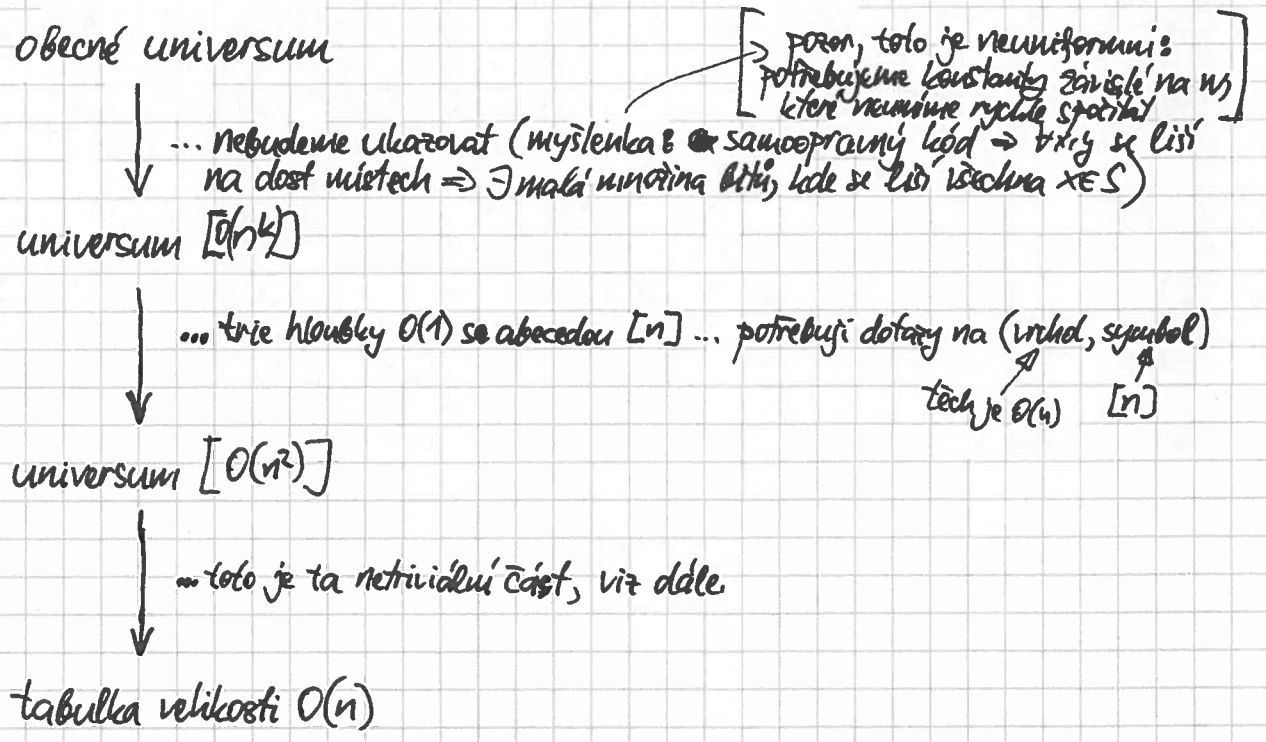 obecné universum
[pozor, toto je neuniformní:
potřebujeme konstanty závislé na w,
které neumíme rychle spočítat]
... nebudeme ukazovat (myšlenka: samoopravný kód ⇒ ∀x,y se liší
na dost místech ⇒ ∃ malá množina bitů, kde se liší všechna x∈S)
universum [O(n^k)]
... trie hloubky O(1) se abecedou [n] ... potřebuji dotazy na (vrchol, symbol)
těch je O(n) [n]
universum [O(n²)]
... toto je ta netriviální část, viz dále.
tabulka velikosti O(n)